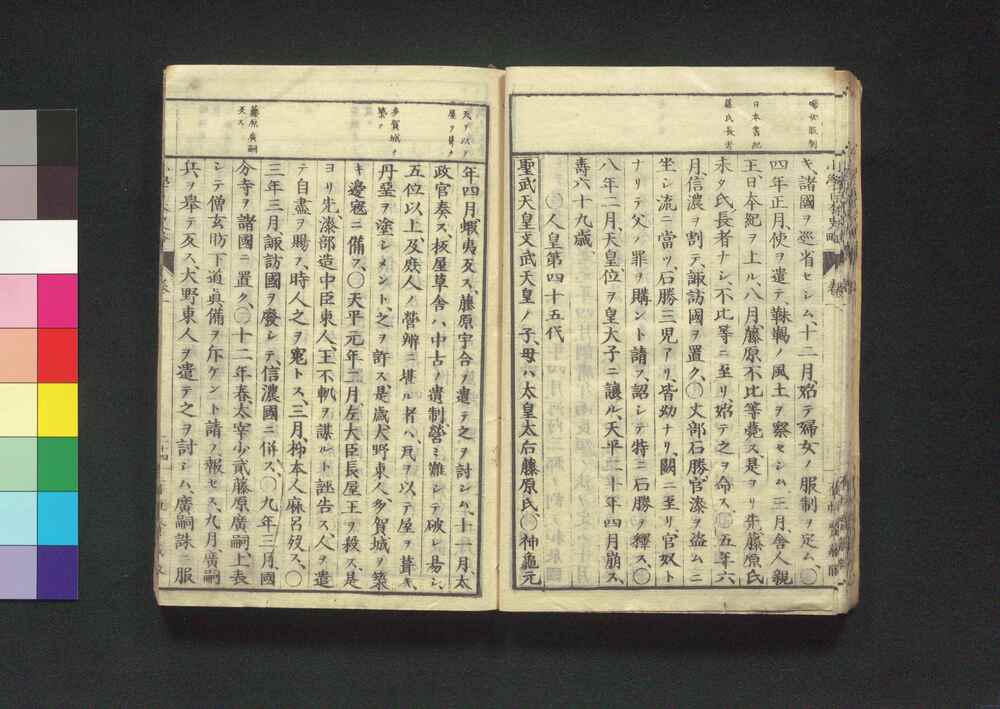 婦女服制
日本書紀
藤氏長者
キ、諸國ヲ巡省セシム、十二月、始テ婦女ノ服制ヲ定ム、〇
四年正月、使ヲ遣テ、靺鞨ノ風土ヲ察セシム、三月、舎人親
王、日本紀ヲ上ル、八月、藤原不比等薨ス、是ヨリ先、藤原氏
未タ氏長者ナシ、不比等ニ至リ、始テ之ヲ命ス、〇五年六
月、信濃ヲ割テ、諏訪國ヲ置ク、〇丈部石勝官漆ヲ盗ムニ
坐シ流ニ當ツ、石勝三児アリ、皆幼ナリ、闕ニ至リ、官奴ト
ナリテ父ノ罪ヲ贖ント請フ、詔シテ特ニ石勝ヲ釋ス、〇
八年二月、天皇位ヲ皇大子ニ讓ル、天平二十年四月崩ス、
壽六十九歳、
〇人皇第四十五代
聖武天皇文武天皇ノ子、母ハ太皇太后藤原氏、〇神龜元
天下以テ
屋ヲ葺ク
多賀城ヲ
築ク
藤原廣嗣
反ス
年四月、蝦夷反ス、藤原宇合ヲ遣テ之ヲ討シム、十一月、太
政官奏ス、板屋草舎ハ、中古ノ遺制、營ミ難シテ破レ易シ、
五位以上及庶人ノ營辨ニ堪ル者ハ、瓦ヲ以テ屋ヲ葺キ、
丹堊ヲ塗シメント、之ヲ許ス、是歳大野東人多賀城ヲ築
キ邊寇ニ備フ、〇天平元年二月、左大臣長屋王ヲ殺ス、是
ヨリ先、漆部造中臣東人、王不軌ヲ謀ルト誣告ス、人ヲ遣
テ自盡ヲ賜フ、時人之ヲ冤トス、三月、柿本人麻呂歿ス、〇
三年三月、諏訪國ヲ廢シテ、信濃國ニ併ス、〇九年三月、國
分寺ヲ諸國ニ置ク、〇十二年春、太宰少貳藤原廣嗣上表
シテ僧玄昉下道眞備ヲ斥ケント請フ、報セス、九月、廣嗣
兵ヲ舉テ反ス、大野東人ヲ遣テ之ヲ討シム、廣嗣誅ニ服